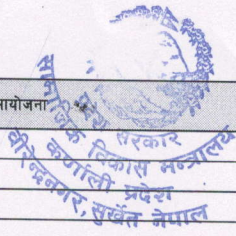 आयोजना
प्रदेश सरकार
सामाजिक विकास मन्त्रालय
कर्णाली प्रदेश
वीरेन्द्रनगर, सुर्खेत नेपाल